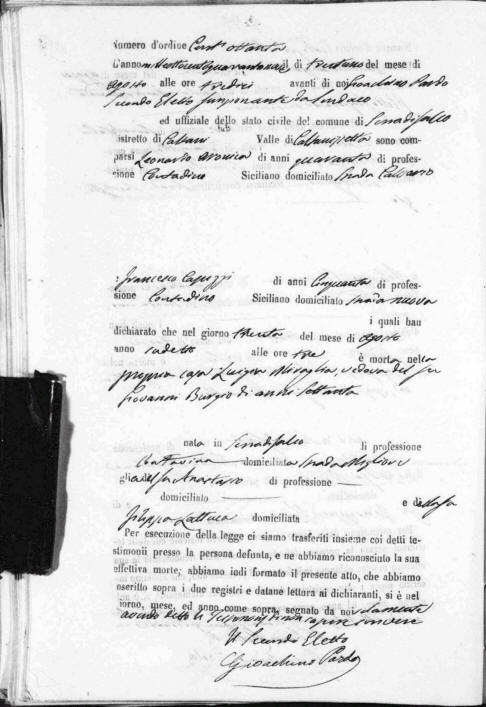 Numero d'ordine Cent' ottanta
L'anno milleottocento quarantanove il dì trentuno del mese di
agosto alle ore tredici avanti di noi Gioachino Pardo
Secondo Eletto funzionante da Sindaco
ed uffiziale dello stato civile del comune di Serradifalco
istretto di Caltani Valle di Caltanissetta sono com-
parsi Leonardo di anni quaranta di profes-
sione Contadino Siciliano domiciliato Strada Calvario
Francesco Capozzi di anni Cinquanta di profes-
sione Contadino Siciliano domiciliato Strada nuova
i quali han
dichiarato che nel giorno trenta del mese di agosto
anno cadetto alle ore tre è morta nella
propria casa Luigia Miraglia, vedova del fu
Giovanni Burgio di anni Settanta
nata in Serradifalco di professione
Contadina domiciliata Strada Migliore
glia del fu Anastasio di professione —
domiciliato — e della fu
Filippa Lattuca domiciliata —
Per esecuzione della legge ci siamo trasferiti insieme coi detti te-
stimonii presso la persona defunta, e ne abbiamo riconosciuto la sua
effettiva morte; abbiamo indi formato il presente atto, che abbiamo
nscritto sopra i due registri e datane lettura ai dichiaranti, si è nel
iorno, mese, ed anno come sopra, segnato da noi solamente
avendo detto li Testimonj di non sapere scrivere
Il Secondo Eletto
Gioachino Pardo